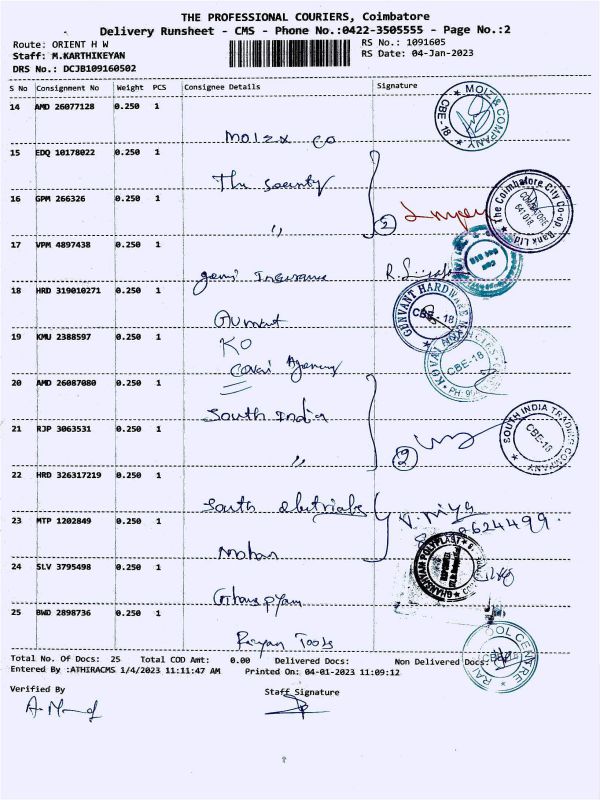 THE PROFESSIONAL COURIERS, Coimbatore
Delivery Runsheet - CMS - Phone No.:0422-3505555 - Page No.:2
Route: ORIENT H W
RS No.: 1091605
Staff: M.KARTHIKEYAN
RS Date: 04-Jan-2023
DRS No.: DCJB109160502
S No Consignment No Weight PCS Consignee Details Signature
14 AMD 26077128 0.250 1
MOIZ & COMPANY CBE - 18
Moizx co
15 EDQ 10178022 0.250 1
The Security
16 GPM 266326 0.250 1
" 2
The Coimbatore City Co-op. Bank Ltd. COIMBATORE 641 018
17 VPM 4897438 0.250 1
Insurance
18 HRD 319010271 0.250 1
GUNVANT HARDWARE CBE - 18
19 KMU 2388597 0.250 1
KO
Covai Agency
KOVAI CBE-18
20 AMD 26087080 0.250 1
South India
21 RJP 3063531 0.250 1
" 2
SOUTH INDIA TRADING COMPANY CBE-18
22 HRD 326317219 0.250 1
South
23 MTP 1202849 0.250 1
Mohan
24 SLV 3795498 0.250 1
GHANSHYAM POLYPLAST
25 BWD 2898736 0.250 1
Tools
Total No. Of Docs: 25 Total COD Amt: 0.00 Delivered Docs: Non Delivered Docs:
Entered By :ATHIRACMS 1/4/2023 11:11:47 AM Printed On: 04-01-2023 11:09:12
Verified By
Staff Signature